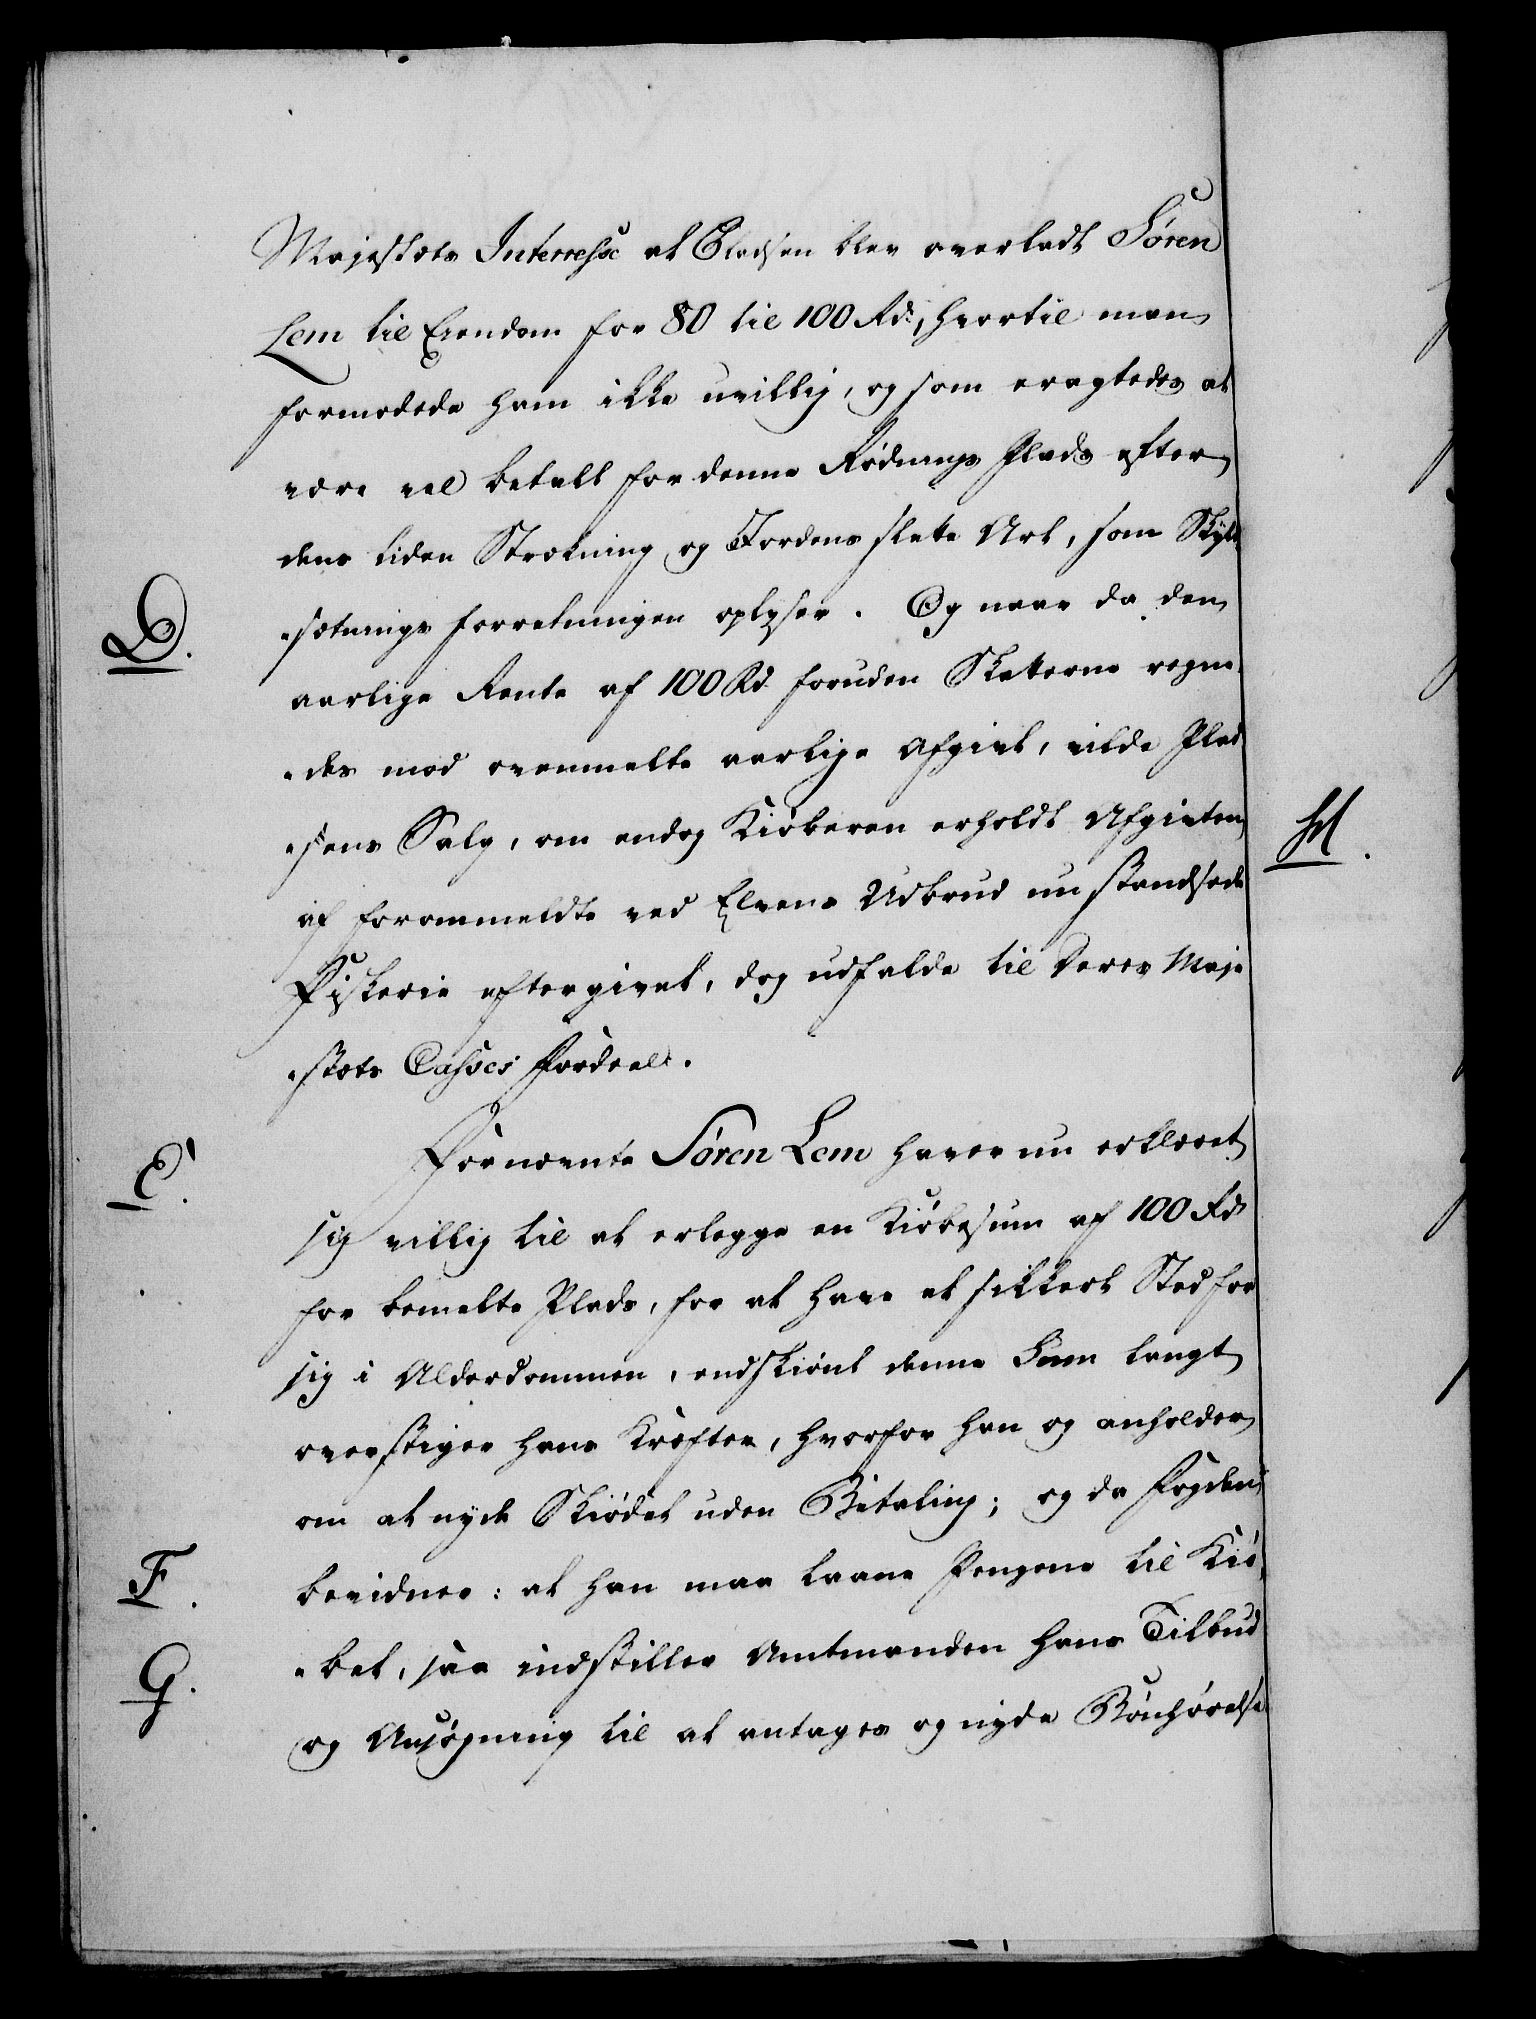 Majestæts Interresse at Pladsen blev overladt Søren
Lem til Eiendom for 80 til 100 Rd:, hvortil man
formodede ham ikke uvillig, og som eragtedes at
være vel betalt for denne Rødnings Plads efter
dens liden Strækning og Jordens slette Art, som Skyld
D.
sætnings forretningen oplyser. Og naar da den
aarlige Rente af 100 Rd foruden Skatterne regne
des mod ovenmelte aarlige Afgivt, vilde Plad
sens Salg, om endog Kiøberen erholdt Afgivten
H.
af forommeldte ved Elvens Udbrud nu standsede
Fiskerie eftergivet, dog udfalde til Deres Maje
stæts Casses Fordeel.
E.
Fornævnte Søren Lem haver nu erklæret
sig villig til at erlegge en Kiøbesum af 100 Rd
for bemelte Plads, for at have et sikkert Sted for
sig i Alderdommen, endskiønt denne Sum langt
overstiger hans Kræfter, hvorfor han og anholder
om at nyde Skiødet uden Betaling; og da Fogden
F.
bevidner: at han maa laane Pengene til Kiø
G.
bet, saa indstiller Amtmanden hans Tilbud
og Ansøgning til at antages og nyde Bønhørelse